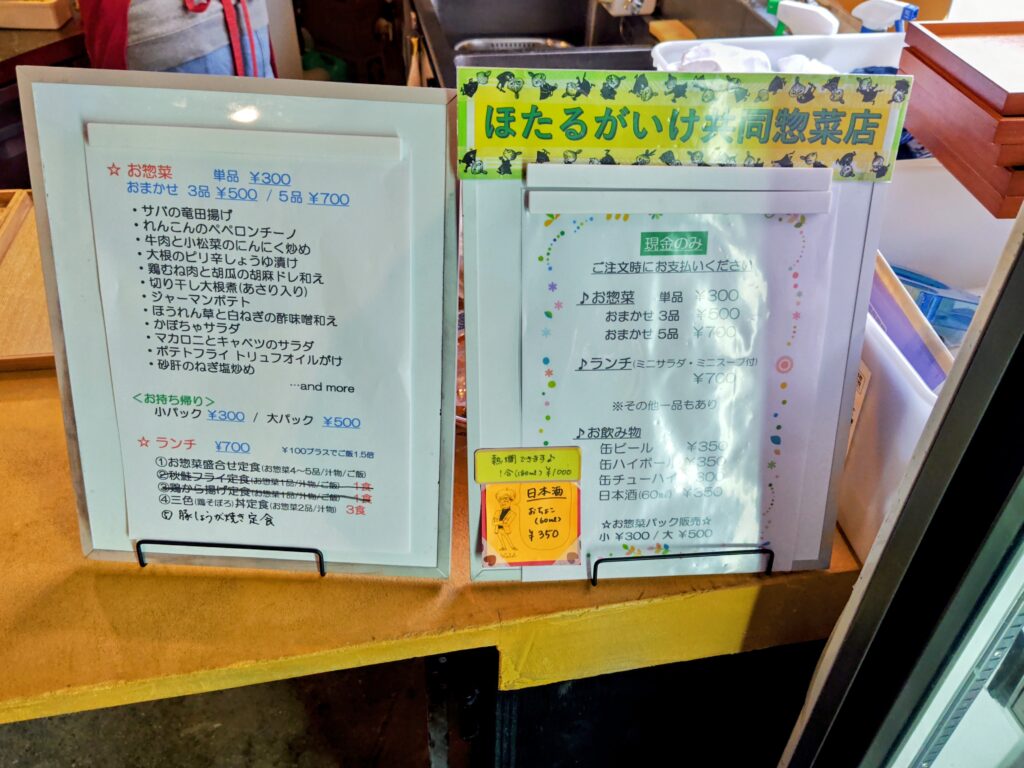 ☆ お惣菜 単品 ¥300
おまかせ 3品 ¥500 / 5品 ¥700
・サバの竜田揚げ
・れんこんのペペロンチーノ
・牛肉と小松菜のにんにく炒め
・大根のピリ辛しょうゆ漬け
・鶏むね肉と胡瓜の胡麻ドレ和え
・切り干し大根煮(あさり入り)
・ジャーマンポテト
・ほうれん草と白ねぎの酢味噌和え
・かぼちゃサラダ
・マカロニとキャベツのサラダ
・ポテトフライ トリュフオイルがけ
・砂肝のねぎ塩炒め
…and more
<お持ち帰り>
小パック ¥300 / 大パック ¥500
☆ ランチ ¥700 ¥100プラスでご飯1.5倍
①お惣菜盛合せ定食(お惣菜4～5品/汁物/ご飯)
②秋鮭フライ定食(お惣菜1品/汁物/ご飯) 1食
③鶏から揚げ定食(お惣菜1品/汁物/ご飯) 1食
④三色(鶏そぼろ)丼定食(お惣菜2品/汁物) 3食
⑤ 豚しょうが焼き定食
ほたるがいけ共同惣菜店
現金のみ
ご注文時にお支払いください
♪お惣菜 単品 ¥300
おまかせ 3品 ¥500
おまかせ 5品 ¥700
♪ランチ(ミニサラダ・ミニスープ付)
¥700
※その他一品もあり
♪お飲み物
缶ビール ¥350
缶ハイボール ¥350
缶チューハイ ¥300
日本酒(60ml) ¥350
☆お惣菜パック販売☆
小 ¥300 / 大 ¥500
熱燗できます♪
1合(180ml) ¥1000
日本酒
おちょこ
(60ml)
¥350